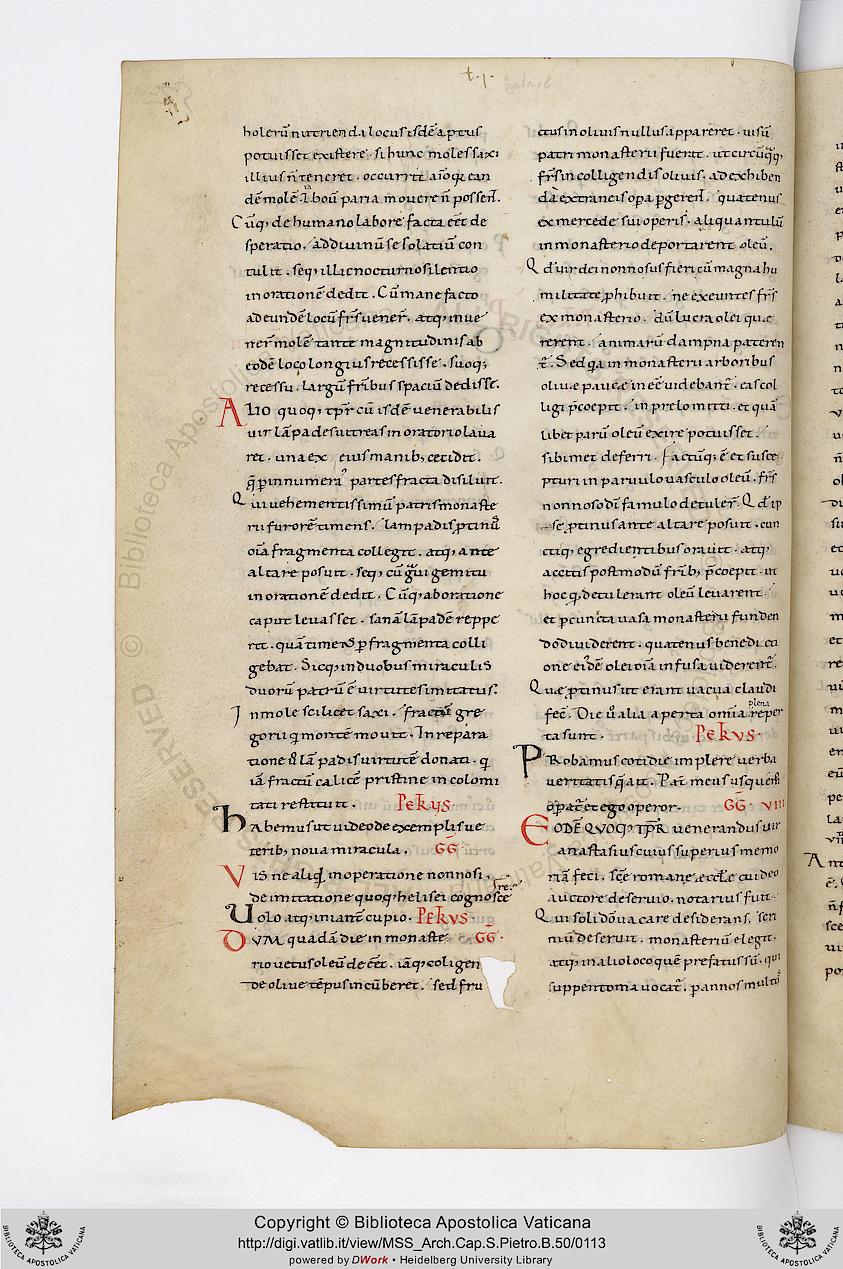 t.1.
holerū nutriendi locus isdē aptus
potuisset existere. si hunc moles saxi
illius n̄ teneret. occurrit aīoq; ean
dē molē L boū paria movere n̄ possent.
Cūq; de humano labore facta eēt de
speratio. ad divinū se solatiū con
tulit. seq; illic nocturno silentio
in orationē dedit. Cū mane facto
ad eundē locū frs̄ vener̄. atq; inve
ner̄ molē tante magnitudinis ab
eodē loco longius recessisse. suoq;
recessu. largū frībus spaciū dedisse.
Alio quoq; tpr̄ cū isdē venerabilis
vir lāpades vitreas in oratorio lava
ret. una ex eius manib; cecidit.
q̄ p innumera partes fracta disiluit.
Qui vehementissimū patris monaste
rii furorē timens. lampadis p̄tinꝰ
oīa fragmenta collegit. atq; ante
altare posuit. seq; cū gͣvi gemitu
in orationē dedit. Cūq; ab oratione
caput levasset. sanā lāpadē reppe
rit. quā timens p fragmenta colli
gebat. Sicq; in duobus miraculis
duorū patrū ē virtutes imitatus.
In mole scilicet saxi. factū gre
gorii q; montē movit. In repara
tione v̊ lāpadis virtutē donati. q
iā fractū calicē pristine incolomi
tati restituit. Petrus.
Habemus ut video de exemplis ve
terib; nova miracula. GG̅.
Vis ne aliqͥd in operatione nonnosi.
de imitatione quoq; helisei cognoscere
Volo atq; inianter cupio. Petrus.
DVM quadā die in monaste GG̅.
rio vetus oleū de eēt. iāq; coligen
de olive tēpus incūberet. sed fru
ctus in olivis nullus appareret. visū
patri monasterii fuerat. ut circūq̄q;
frs̄ in colligendis olivis. ad exhiben
da extraneis opa p̄gerent. quatenus
ex mercede sui operis. aliquantulū
in monasterio deportarent oleū.
Qd vir dei nonnosus fieri cū magna hu
militate p̄hibuit. ne exeuntes frs̄
ex monasterio. dū lucra olei quæ
rerent. animarū dampna pateren
tͬ. Sed q̄a in monasterii arboribus
olivæ paucæ inēē videbantͬ. eas col
ligi p̄coepit. in prelo mitti. et quā
libet parū oleū exire potuisset.
sibimet deferri. Factūq; ē et susce
pturi in parvulo vasculo oleū. frs̄
nonnoso dī famulo detuler̄. Qd ip
se p̄tinus ante altare posuit. cun
ctiq; egredientibus oravit. atq;
accitis postmodū frīb; p̄coepit. ut
hoc q; detulerant oleū levarent.
et p cuncta vasa monasterii funden
do dividerent. quatenus benedicti
one eidē olei oīa infusa viderentͬ.
Quæ p̄tinus ut erant vacua claudi
fec̄. Die v̊ alia aperta omīa plena reper
ta sunt. Petrus.
Probamus cotidie implere verba
veritatis q̄ ait. Patͬ meus usq; modo
opͣatͬ et ego operor. GG̅. VIII
EODĒ QVOQ; TPR̄ venerandus vir
anastasius cuius superius memo
riā feci. scē romane eccl̄e cui deo
auctore deservio. notarius fuit.
Qui soli dō vacare desiderans. scri
niū deseruit. monasteriū elegit.
atq; in alio loco quē prefatus sū. qui
suppentoma vocatͬ. p annos multos
Copyright © Biblioteca Apostolica Vaticana
http://digi.vatlib.it/view/MSS_Arch.Cap.S.Pietro.B.50/0113
powered by DWork • Heidelberg University Library